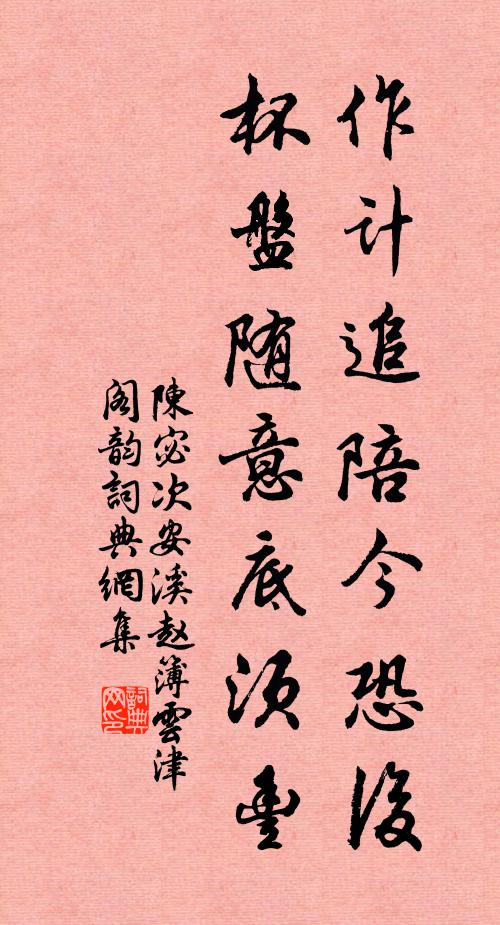 作計追陪今恐後
杯盤随意底須豊
陳宓次安溪赵簿雲津
阁韵詞典網集
詞典网印